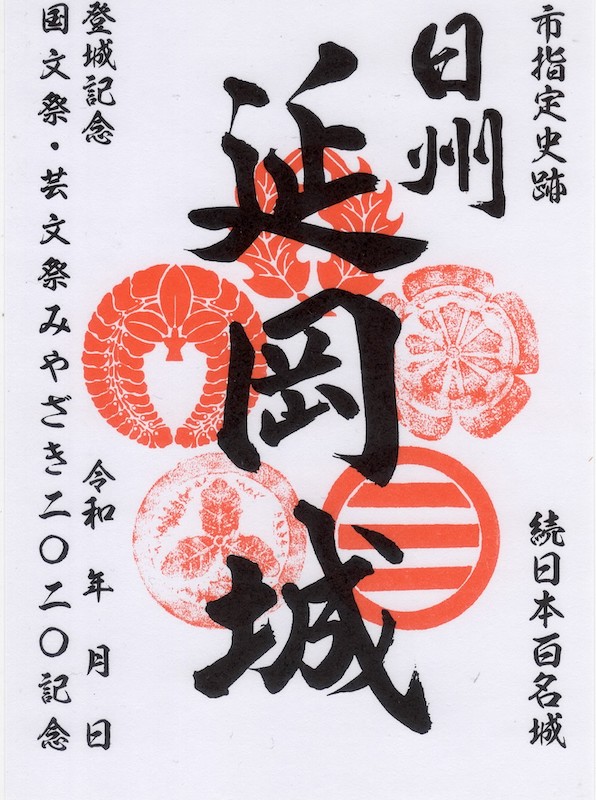 市指定史跡
続日本百名城
日州
延岡城
登城記念
令和 年 月 日
国文祭・芸文祭みやざき二〇二〇記念